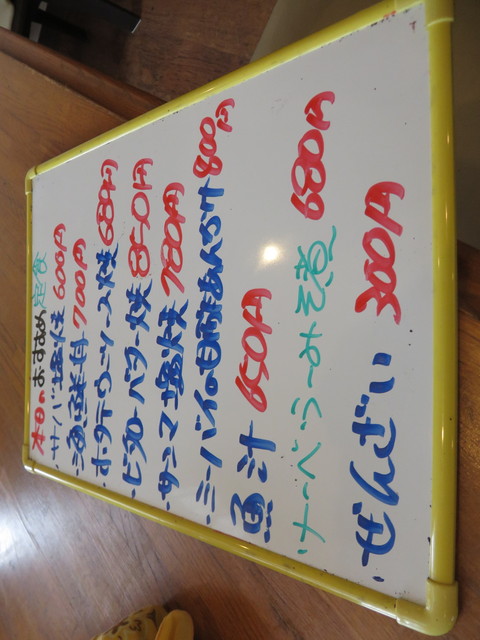 本日のおすすめ定食
・サバ塩焼 600円
・海鮮丼 700円
・ホタテウニソース焼 680円
・ビタローバター焼 850円
・サンマ塩焼 780円
・ミーバイの甘酢あんかけ 800円
魚汁 650円
・ナーベラーみそ煮 680円
・ぜんざい 300円